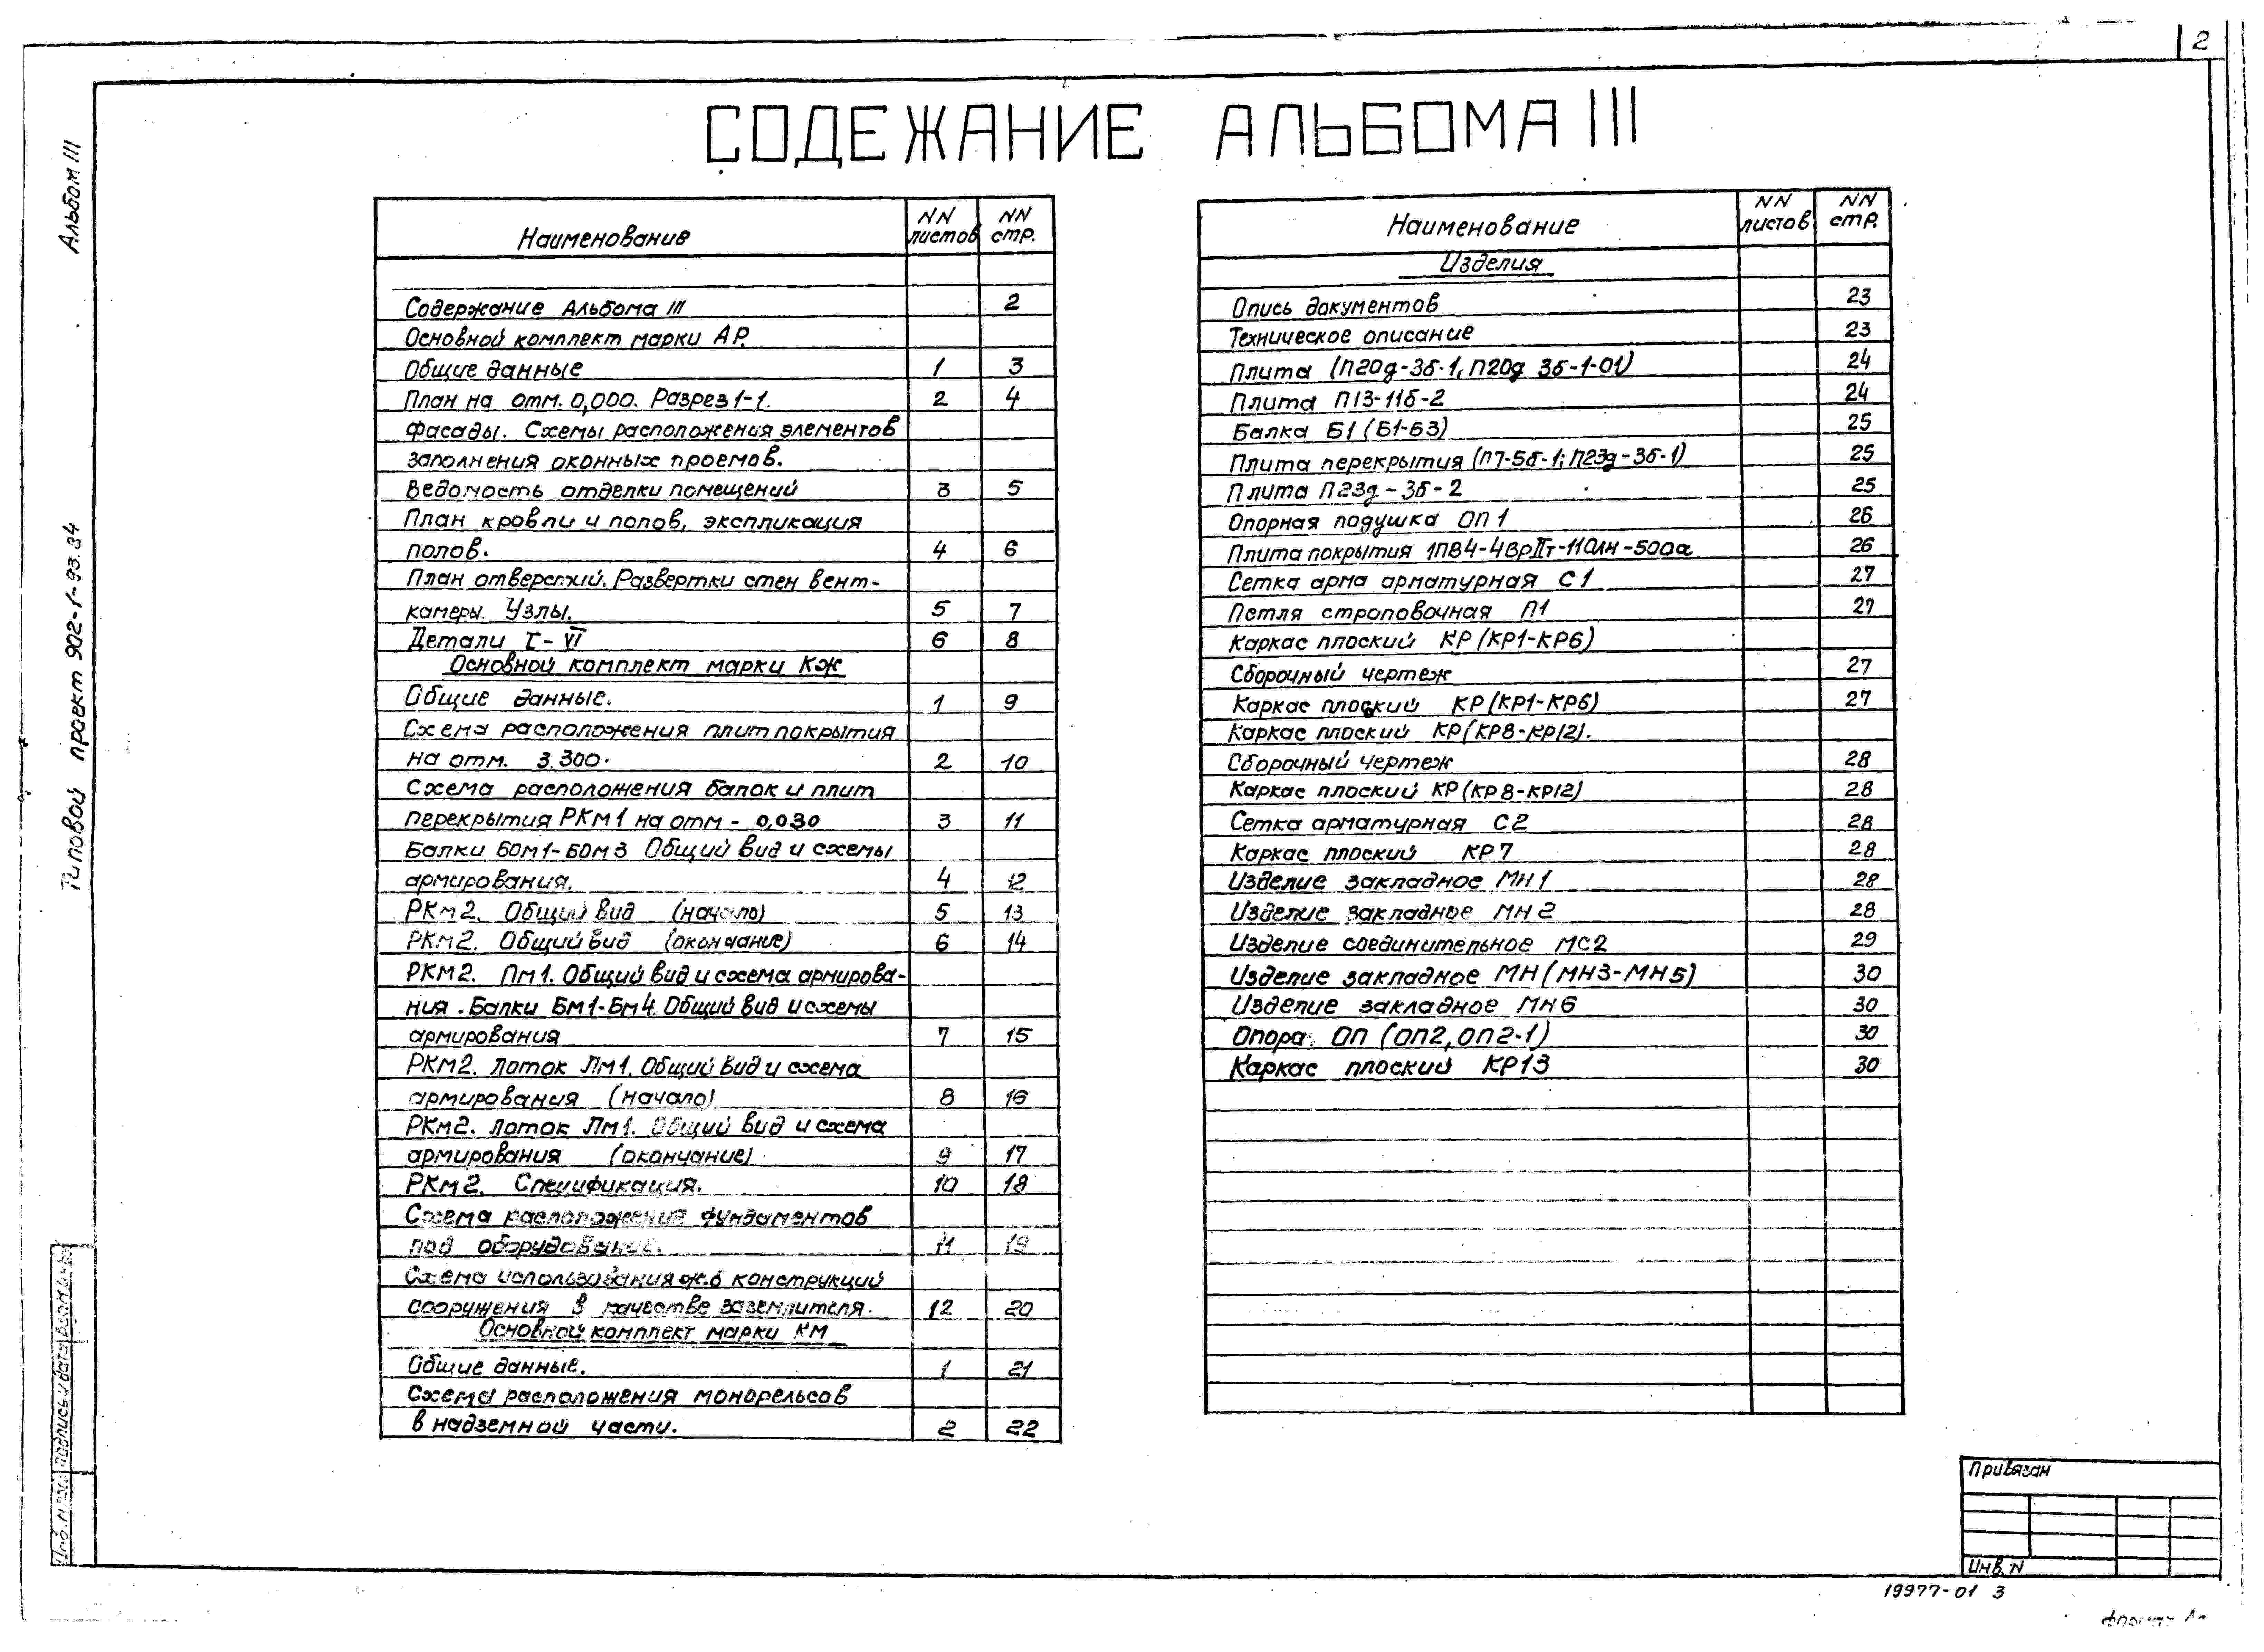 2
СОДЕЖАНИЕ АЛЬБОМА III
Альбом III
Типовой проект 902-1-93.84
Наименование NN листов NN стр.
Содержание Альбома III 2
Основной комплект марки АР.
Общие данные 1 3
План на отм. 0,000. Разрез 1-1. 2 4
Фасады. Схемы расположения элементов
заполнения оконных проемов.
Ведомость отделки помещений 3 5
План кровли и полов, экспликация
полов. 4 6
План отверстий. Развертки стен вент-
камеры. Узлы. 5 7
Детали I - VI 6 8
Основной комплект марки КЖ
Общие данные. 1 9
Схема расположения плит покрытия
на отм. 3.300. 2 10
Схема расположения балок и плит
перекрытия РКм1 на отм - 0,030 3 11
Балки БОм1-БОм3 Общий вид и схемы
армирования. 4 12
РКм2. Общий вид (начало) 5 13
РКм2. Общий вид (окончание) 6 14
РКм2. Пм1. Общий вид и схема армирова-
ния. Балки Бм1-Бм4. Общий вид и схемы
армирования 7 15
РКм2. Лоток Лм1. Общий вид и схема
армирования (начало) 8 16
РКм2. Лоток Лм1. Общий вид и схема
армирования (окончание) 9 17
РКм2. Спецификация. 10 18
Схема расположения фундаментов
под оборудование. 11 19
Схема использования ж.б конструкций
сооружения в качестве заземлителя. 12 20
Основной комплект марки КМ
Общие данные. 1 21
Схема расположения монорельсов
в надземной части. 2 22
Наименование NN листов NN стр.
Изделия
Опись документов 23
Техническое описание 23
Плита (П20д-3б-1, П20д 3б-1-01) 24
Плита П13-11б-2 24
Балка Б1 (Б1-Б3) 25
Плита перекрытия (П7-5б-1; П23д-3б-1) 25
Плита П23д-3б-2 25
Опорная подушка ОП1 26
Плита покрытия 26
Сетка арма арматурная С1 27
Петля строповочная П1 27
Каркас плоский КР (КР1-КР6)
Сборочный чертеж 27
Каркас плоский КР (КР1-КР6) 27
Каркас плоский КР (КР8-КР12).
Сборочный чертеж 28
Каркас плоский КР (КР8-КР12) 28
Сетка арматурная С2 28
Каркас плоский КР7 28
Изделие закладное МН1 28
Изделие закладное МН2 28
Изделие соединительное МС2 29
Изделие закладное МН (МН3-МН5) 30
Изделие закладное МН6 30
Опора ОП (ОП2, ОП2-1) 30
Каркас плоский КР13 30
Привязан
Инв. N
19977-01 3
Подпись и дата